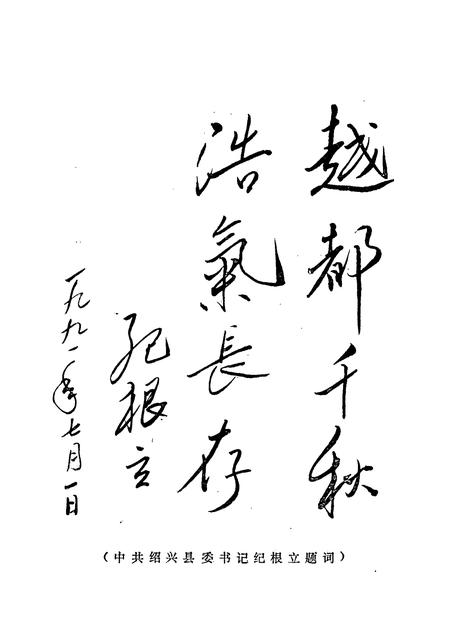 越都千秋
浩氣長存
纪根立
一九九一年七月一日
（中共绍兴县委书记纪根立题词）